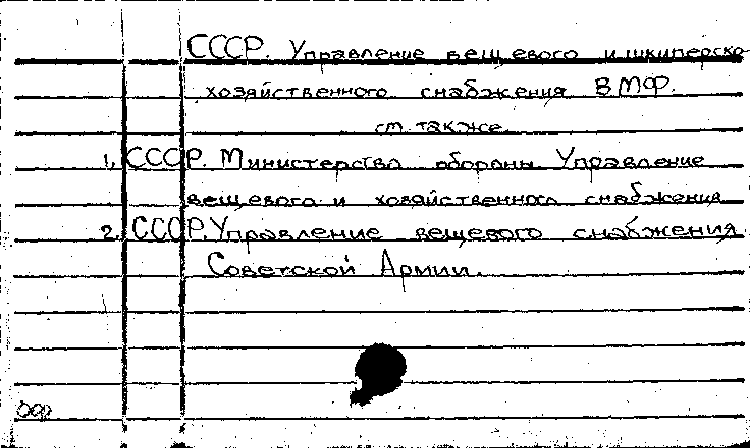 СССР. Управление вещевого и шкиперско-
хозяйственного снабжения ВМФ.
см. также
1. СССР. Министерство обороны Управление
вещевого и хозяйственного снабжения
2. СССР. Управление вещевого снабжения
Советской Армии.